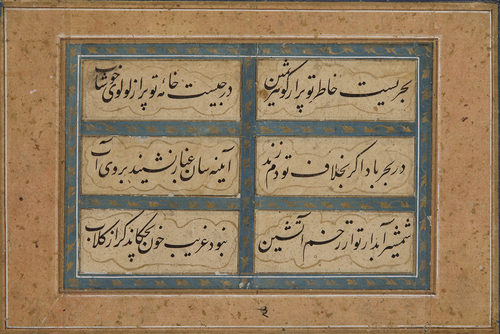 بحریست خاطر تو پر از گوهر ثمین
درجیست خانهٔ تو پر از لولوی خوشاب
در بحر باد اکر بخلاف تو دم زند
آینه سان غبار نشیند بروی آب
شمشیر آبدار تو از زخم آتشین
نبود غریب خون بچکاند کر از کلاب